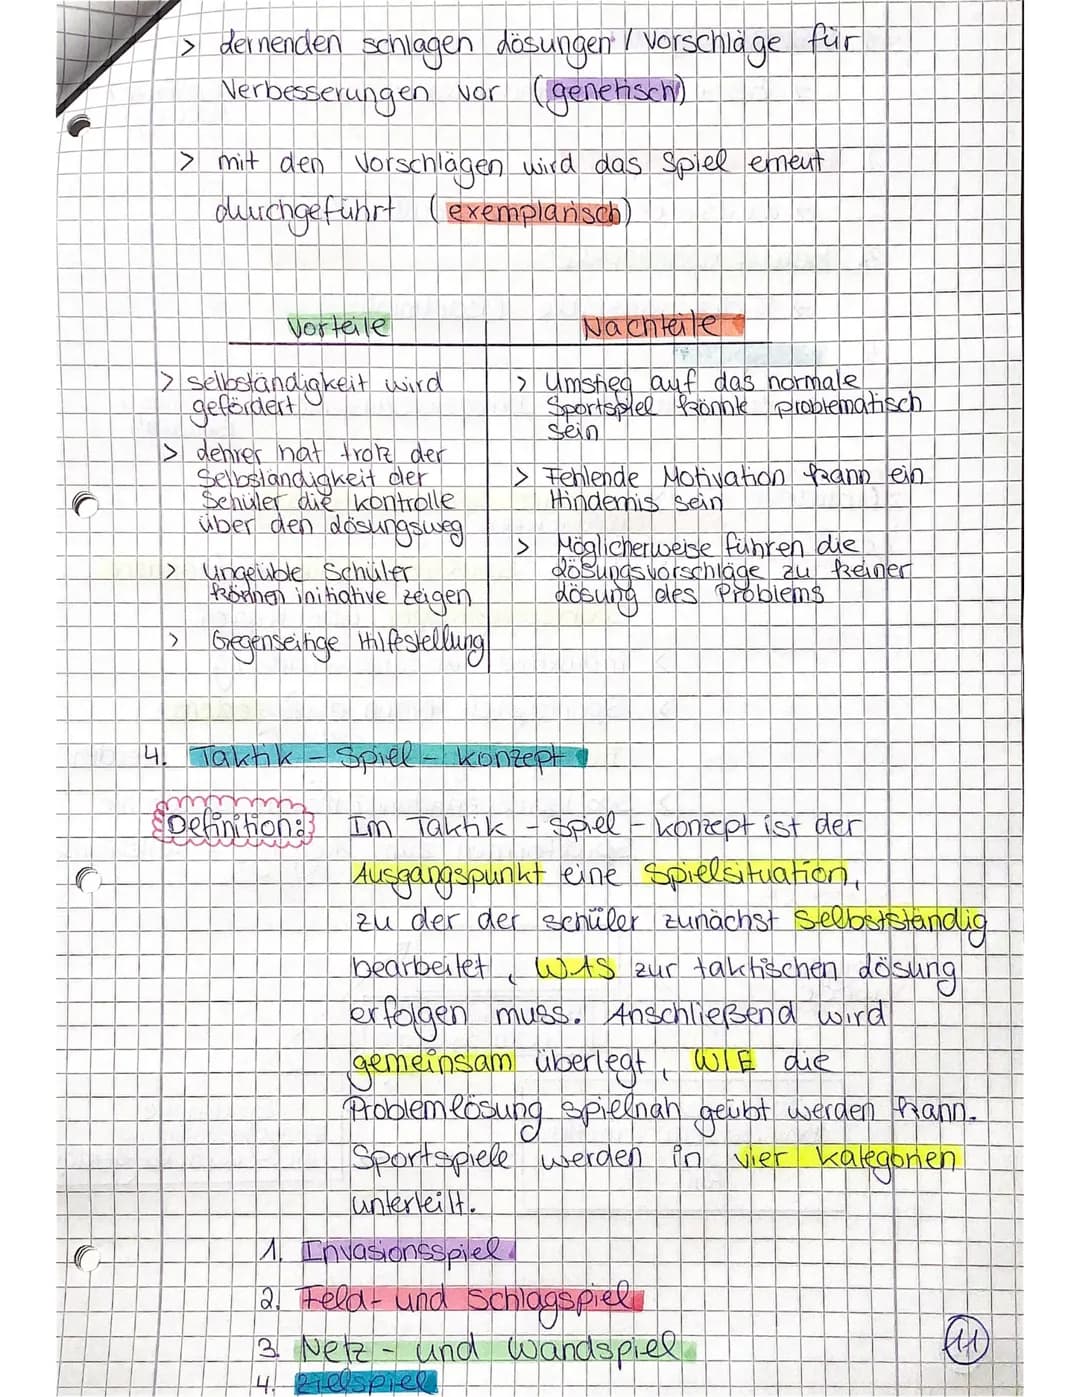 > Lernenden schlagen Lösungen / Vorschläge für
Verbesserungen vor (genetisch)
> mit den Vorschlägen wird das Spiel erneut
durchgeführt (exemplarisch)
Vorteile
> selbständigkeit wird
gefördert
> Lehrer hat trotz der
Selbständigkeit der
Schüler die kontrolle
über den Lösungsweg
> Ungeübte Schüler
können initiative zeigen
> Gegenseitige Hilfestellung
Nachteile
> Umstieg auf das normale
Sportspiel könnte problematisch
sein
> Fehlende Motivation kann ein
Hindernis sein
> Möglicherweise führen die
Lösungsvorschläge zu keiner
Lösung des Problems
4. Taktik - Spiel - konzept
Definition: Im Taktik - Spiel - konzept ist der
Ausgangspunkt eine Spielsituation,
zu der der schüler zunächst selbstständig
bearbeitet, WAS zur taktischen Lösung
erfolgen muss. Anschließend wird
gemeinsam überlegt, WIE die
Problemlösung spielnah geübt werden kann.
Sportspiele werden in vier kategorien
unterteilt.
1. Invasionsspiel
2. Feld- und Schlagspiel
3. Netz - und Wandspiel
4. Zielspiel
11